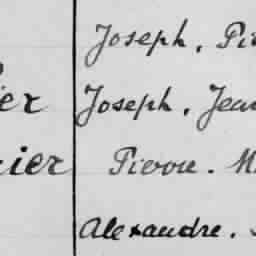 Joseph. Pi
er Joseph. Jean
ier Pierre. M
Alexandre.